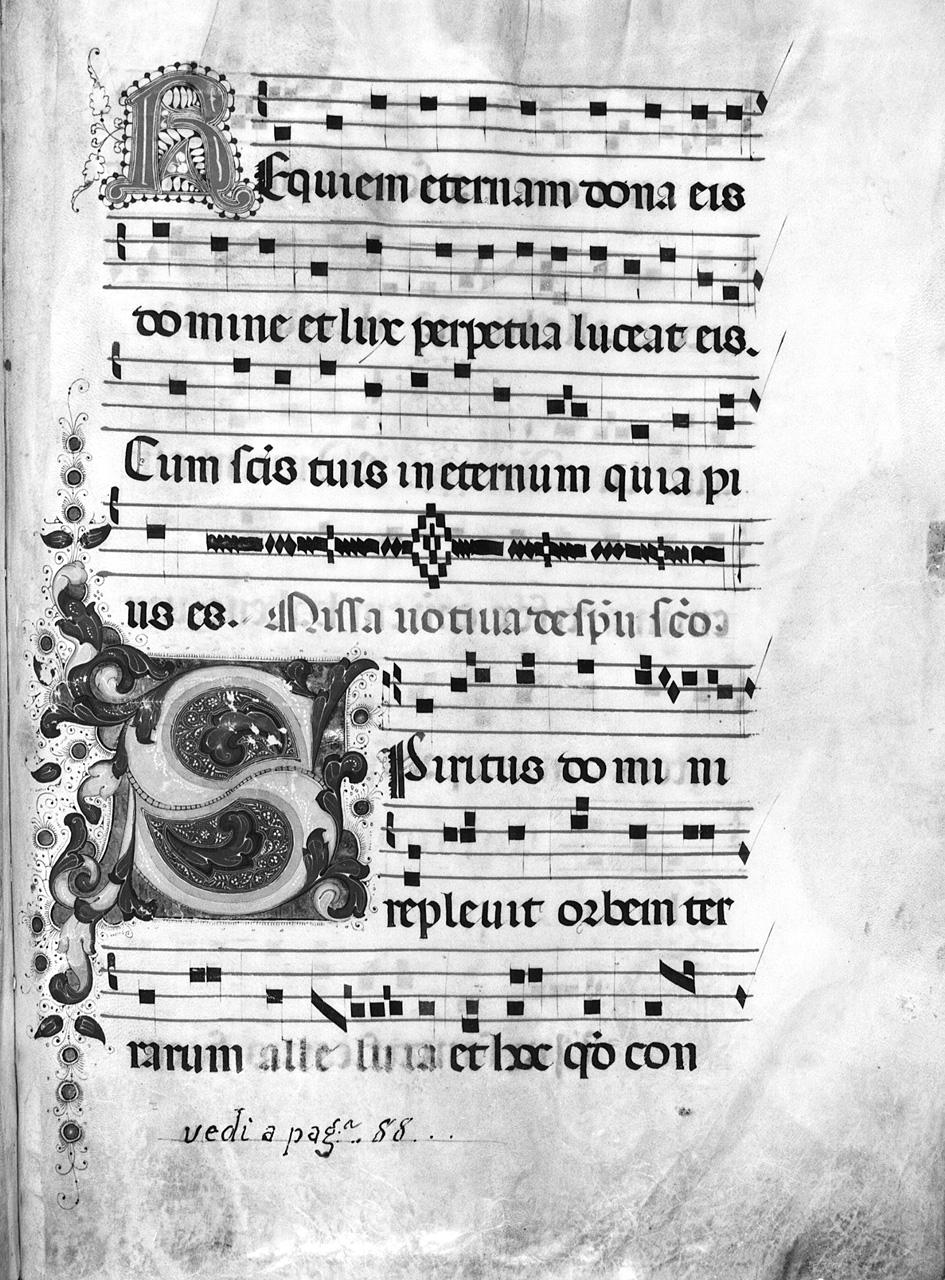 REquiem eternam dona eis
domine et lux perpetua luceat eis.
Cum scīs tuis in eternum quia pi
us es. Missa uotiua de spū scō.
SPiritus domi ni
repleuit orbem ter
rarum alleluia et hoc qō con
vedi a pag.ª 88...